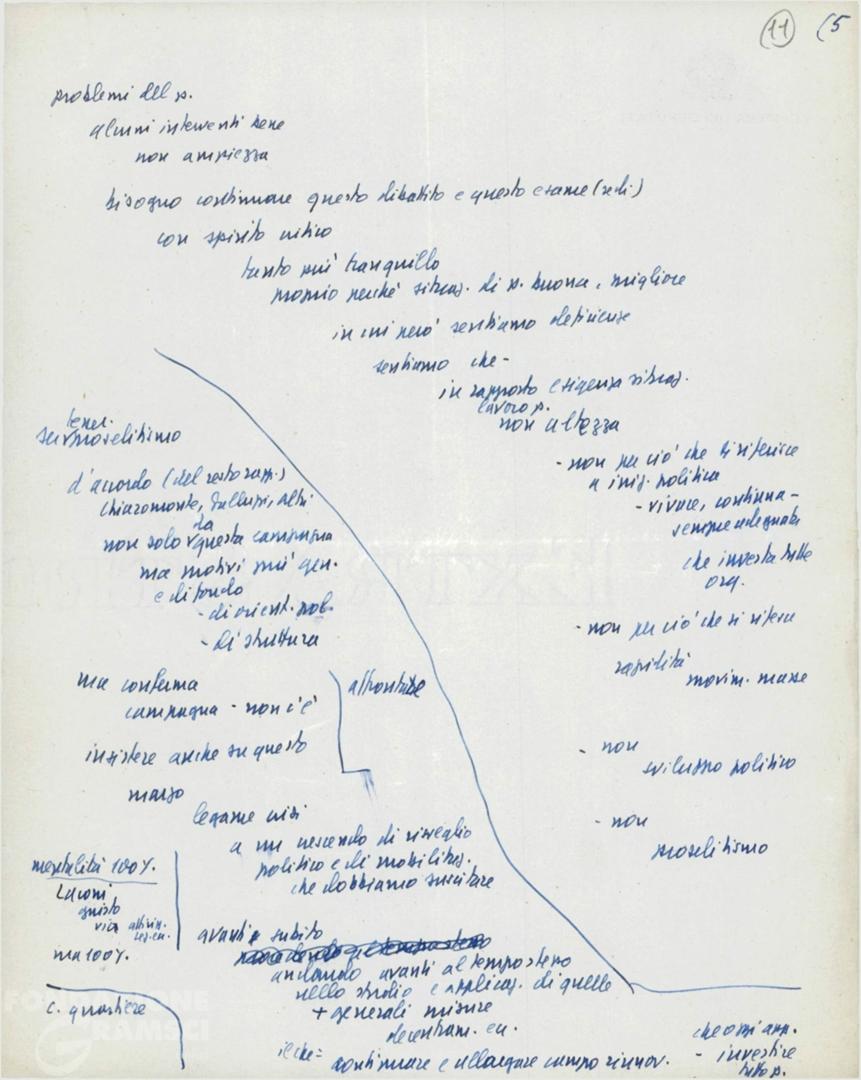 11 (5
problemi del p.
alcuni interventi bene
non ampiezza
bisogno continuare questo dibattito e questo esame (sedi)
con spirito critico
tanto più tranquillo
proprio perché situaz. di p. buona, migliore
in cui però sentiamo deficienze
sentiamo che -
in rapporto esigenza situaz.
lavoro p.
non altezza
- non per ciò che si riferisce
a iniz. politica
- vivace, continua -
sempre adeguata
che investa tutte
org.
- non per ciò che si riferisce
rapidità
movim. masse
- non
sviluppo politico
- non
proselitismo
tener.
sul proselitismo
d'accordo (del resto rapp.)
Chiaromonte, Galluzzi, altri
non solo da questa campagna
ma motivi più gen.
e di fondo
- di orient. pol.
- di struttura
ma conferma
campagna - non c'è
affrontate
insistere anche su questo
marzo
legame crisi
a un crescendo di risveglio
politico e di mobilitaz.
che dobbiamo suscitare
mentalità 100%.
Laconi
giusto
via
ma 100%.
c. quartiere
avanti subito
andando avanti al tempo stesso
nello studio e applicaz. di quelle
+ generali misure
decentram. ecc.
il che =
continuare e allargare campo rinnov.
che oggi app.
- investire
tutto p.
FONDAZIONE
GRAMSCI